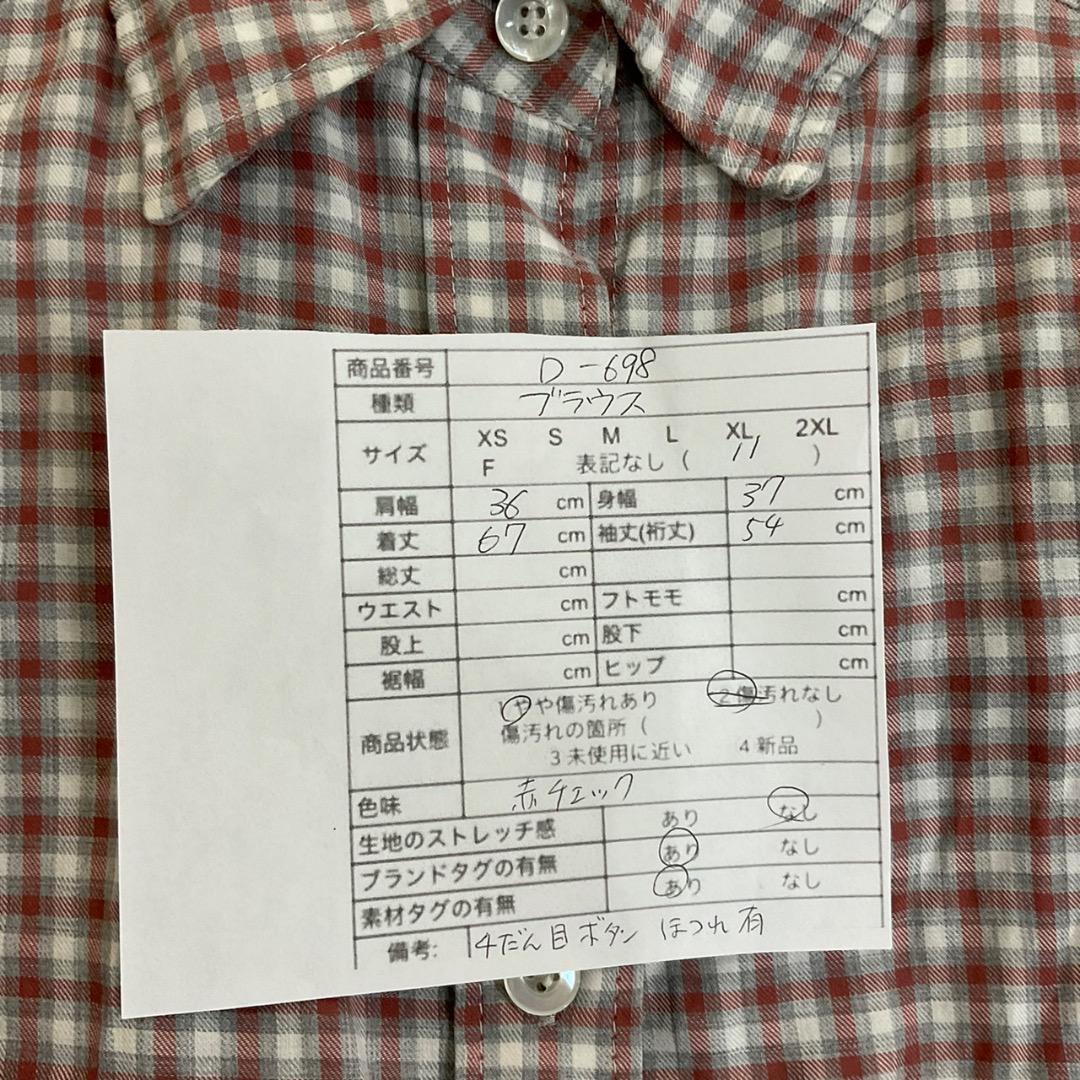 商品番号 D-698
種類 ブラウス
サイズ XS S M L XL 2XL
F 表記なし ( 11 )
肩幅 36 cm 身幅 37 cm
着丈 67 cm 袖丈(裄丈) 54 cm
総丈 cm
ウエスト cm フトモモ cm
股上 cm 股下 cm
裾幅 cm ヒップ cm
商品状態 1やや傷汚れあり 2傷汚れなし
傷汚れの箇所 ( )
3未使用に近い 4新品
色味 赤チェック
生地のストレッチ感 あり なし
ブランドタグの有無 あり なし
素材タグの有無 あり なし
備考: 4だん目ボタン ほつれ有